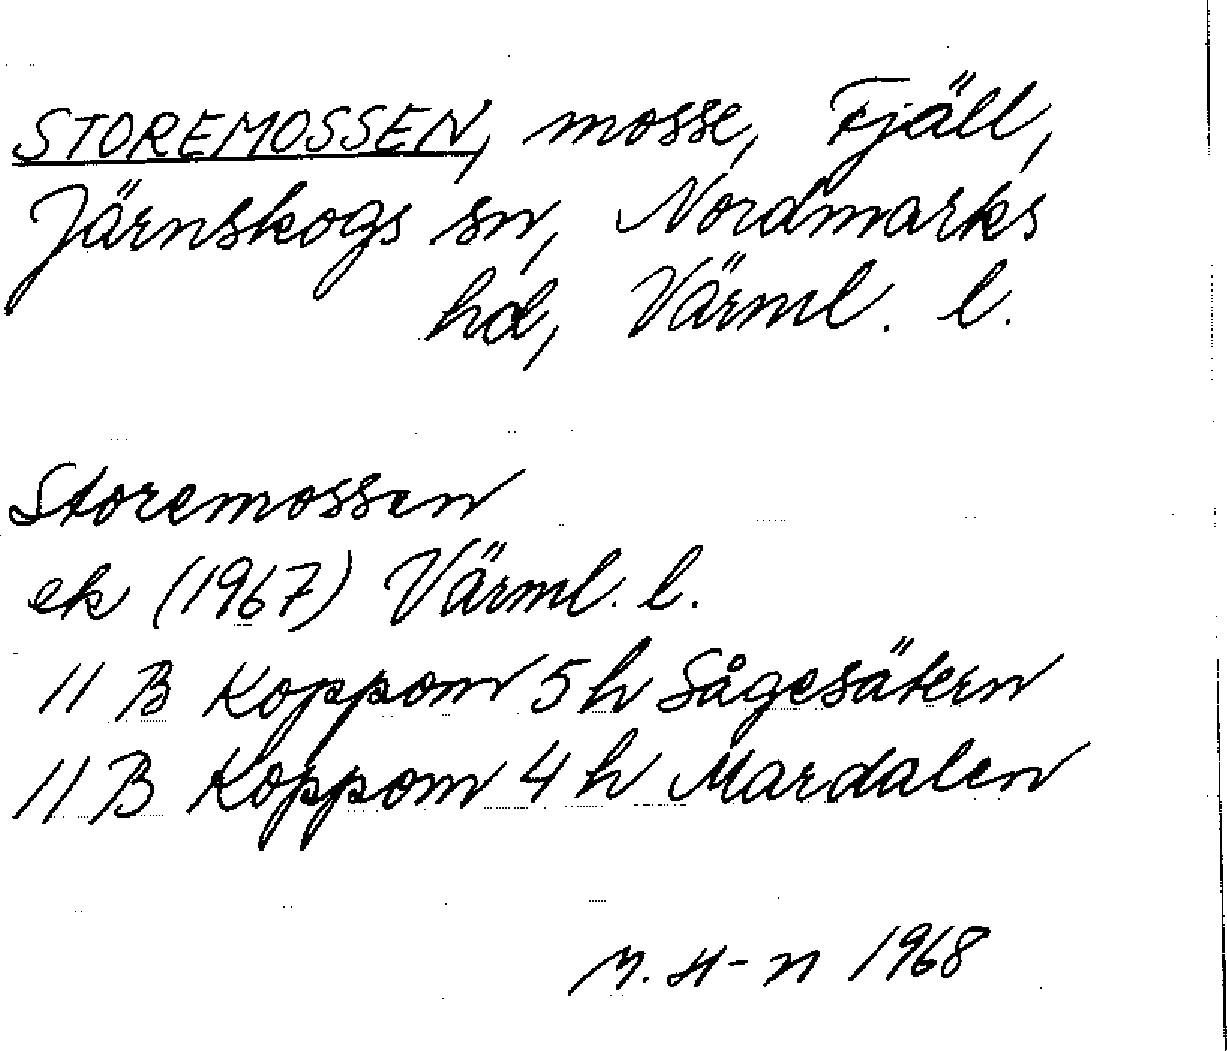 STOREMOSSEN, mosse, Fjäll,
Järnskogs sn, Nordmarks
hd, Värml. l.
Storemossen
ek (1967) Värml. l.
11 B Koppom 5 h Sågesätern
11 B Koppom 4 h Mardalen
M. H-n 1968